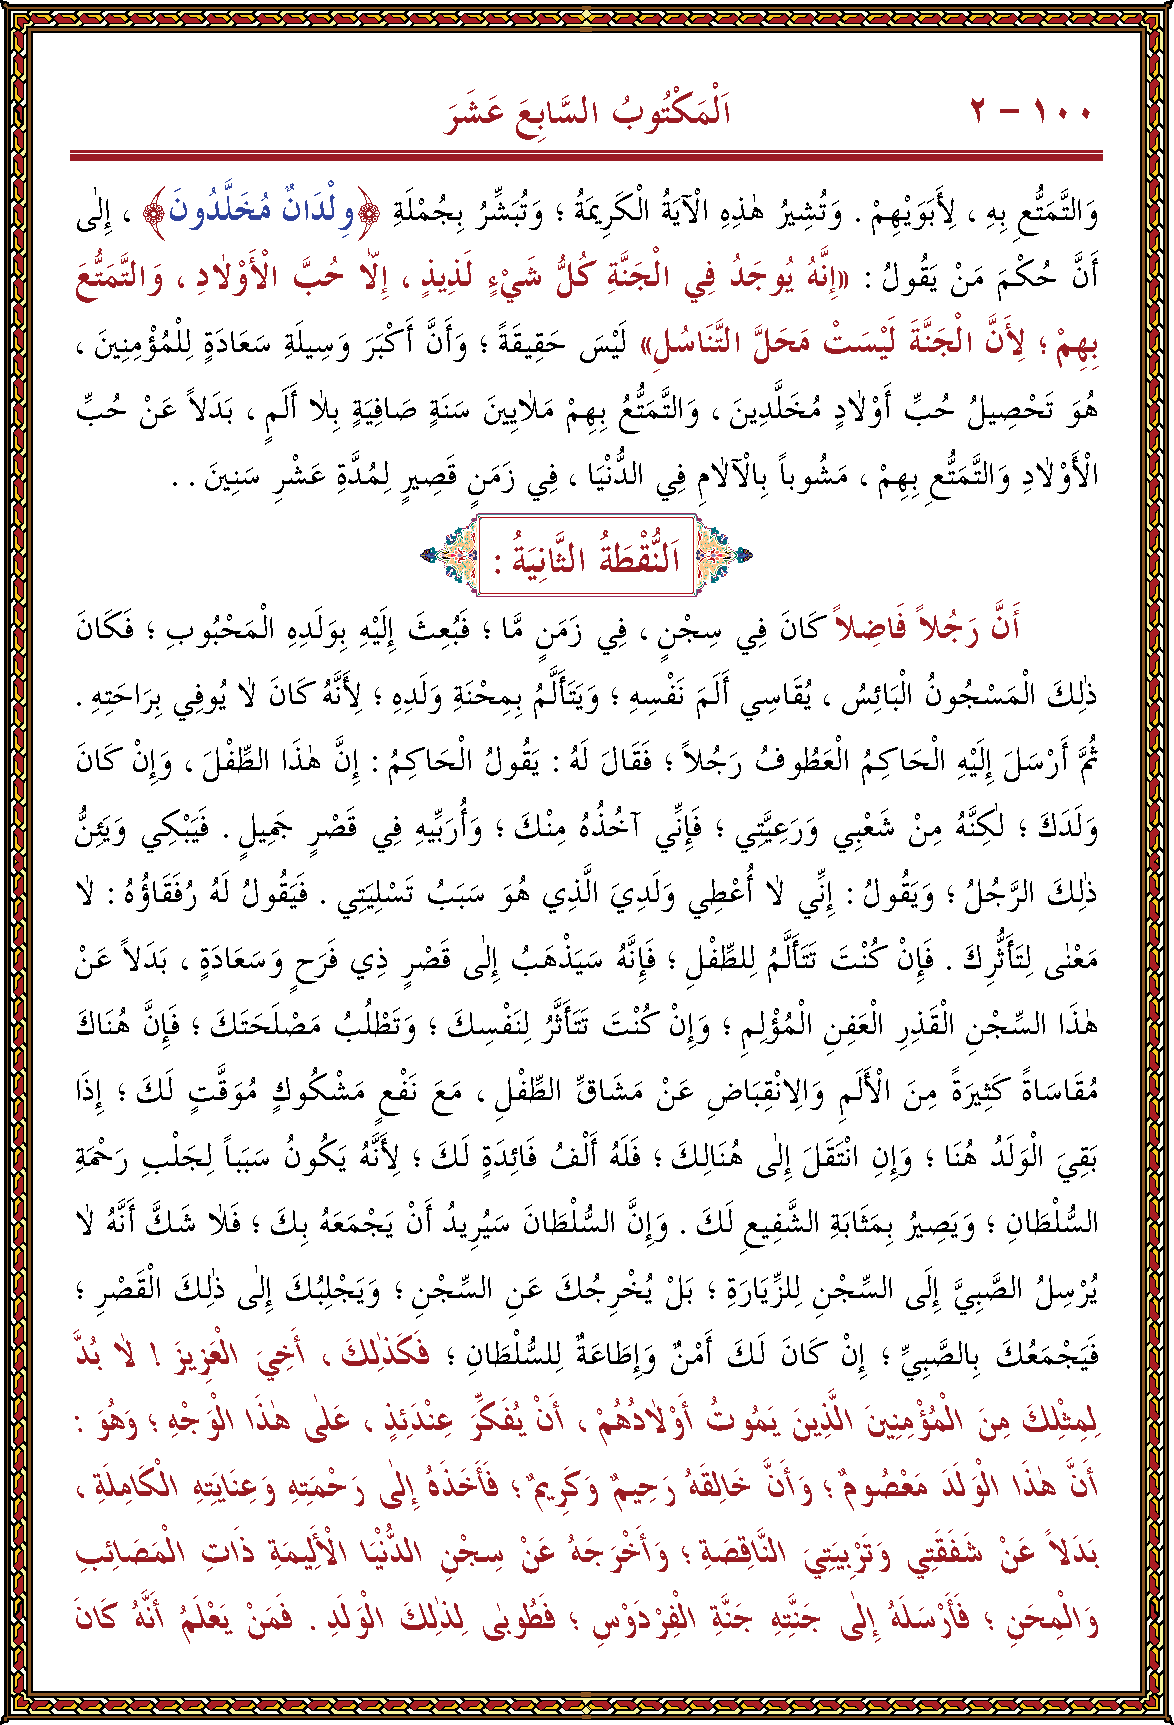 ١٠٠ – ٢
اَلْمَكْتُوبُ السَّابِعَ عَشَرَ
وَالتَّمَتُّعِ بِهِ ، لِأَبَوَيْهِمْ . وَتُشِيرُ هٰذِهِ الْآيَةُ الْكَرِيمَةُ ؛ وَتُبَشِّرُ بِجُمْلَةِ ﴿وِلْدَانٌ مُخَلَّدُونَ﴾ ، إِلٰى
أَنَّ حُكْمَ مَنْ يَقُولُ : «إِنَّهُ يُوجَدُ فِي الْجَنَّةِ كُلُّ شَيْءٍ لَذِيذٍ ، إِلَّا حُبَّ الْأَوْلَادِ ، وَالتَّمَتُّعَ
بِهِمْ ؛ لِأَنَّ الْجَنَّةَ لَيْسَتْ مَحَلَّ التَّنَاسُلِ» لَيْسَ حَقِيقَةً ؛ وَأَنَّ أَكْبَرَ وَسِيلَةِ سَعَادَةٍ لِلْمُؤْمِنِينَ ،
هُوَ تَحْصِيلُ حُبِّ أَوْلَادٍ مُخَلَّدِينَ ، وَالتَّمَتُّعُ بِهِمْ مَلَايِينَ سَنَةٍ صَافِيَةٍ بِلَا أَلَمٍ ، بَدَلاً عَنْ حُبِّ
الْأَوْلَادِ وَالتَّمَتُّعِ بِهِمْ ، مَشُوباً بِالْآلَامِ فِي الدُّنْيَا ، فِي زَمَنٍ قَصِيرٍ لِمُدَّةِ عَشْرِ سَنِينَ . .
اَلنُّقْطَةُ الثَّانِيَةُ :
أَنَّ رَجُلاً فَاضِلاً كَانَ فِي سِجْنٍ ، فِي زَمَنٍ مَّا ؛ فَبُعِثَ إِلَيْهِ بِوَلَدِهِ الْمَحْبُوبِ ؛ فَكَانَ
ذٰلِكَ الْمَسْجُونُ الْبَائِسُ ، يُقَاسِي أَلَمَ نَفْسِهِ ؛ وَيَتَأَلَّمُ بِمِحْنَةِ وَلَدِهِ ؛ لِأَنَّهُ كَانَ لَا يُوفِي بِرَاحَتِهِ .
ثُمَّ أَرْسَلَ إِلَيْهِ الْحَاكِمُ الْعَطُوفُ رَجُلاً ؛ فَقَالَ لَهُ : يَقُولُ الْحَاكِمُ : إِنَّ هٰذَا الطِّفْلَ ، وَإِنْ كَانَ
وَلَدَكَ ؛ لٰكِنَّهُ مِنْ شَعْبِي وَرَعِيَّتِي ؛ فَإِنِّي آخُذُهُ مِنْكَ ؛ وَأُرَبِّيهِ فِي قَصْرٍ جَمِيلٍ . فَيَبْكِي وَيَئِنُّ
ذٰلِكَ الرَّجُلُ ؛ وَيَقُولُ : إِنِّي لَا أُعْطِي وَلَدِيَ الَّذِي هُوَ سَبَبُ تَسْلِيَتِي . فَيَقُولُ لَهُ رُفَقَاؤُهُ : لَا
مَعْنٰى لِتَأَثُّرِكَ . فَإِنْ كُنْتَ تَتَأَلَّمُ لِلطِّفْلِ ؛ فَإِنَّهُ سَيَذْهَبُ إِلٰى قَصْرٍ ذِي فَرَحٍ وَسَعَادَةٍ ، بَدَلاً عَنْ
هٰذَا السِّجْنِ الْقَذِرِ الْعَفِنِ الْمُؤْلِمِ ؛ وَإِنْ كُنْتَ تَتَأَثَّرُ لِنَفْسِكَ ؛ وَتَطْلُبُ مَصْلَحَتَكَ ؛ فَإِنَّ هُنَاكَ
مُقَاسَاةً كَثِيرَةً مِنَ الْأَلَمِ وَالِانْقِبَاضِ عَنْ مَشَاقِّ الطِّفْلِ ، مَعَ نَفْعٍ مَشْكُوكٍ مُوَقَّتٍ لَكَ ؛ إِذَا
بَقِيَ الْوَلَدُ هُنَا ؛ وَإِنِ انْتَقَلَ إِلٰى هُنَالِكَ ؛ فَلَهُ أَلْفُ فَائِدَةٍ لَكَ ؛ لِأَنَّهُ يَكُونُ سَبَباً لِجَلْبِ رَحْمَةِ
السُّلْطَانِ ؛ وَيَصِيرُ بِمَثَابَةِ الشَّفِيعِ لَكَ . وَإِنَّ السُّلْطَانَ سَيُرِيدُ أَنْ يَجْمَعَهُ بِكَ ؛ فَلَا شَكَّ أَنَّهُ لَا
يُرْسِلُ الصَّبِيَّ إِلَى السِّجْنِ لِلزِّيَارَةِ ؛ بَلْ يُخْرِجُكَ عَنِ السِّجْنِ ؛ وَيَجْلِبُكَ إِلٰى ذٰلِكَ الْقَصْرِ ؛
فَيَجْمَعُكَ بِالصَّبِيِّ ؛ إِنْ كَانَ لَكَ أَمْنٌ وَإِطَاعَةٌ لِلسُّلْطَانِ ؛ فَكَذٰلِكَ ، أَخِيَ الْعَزِيزَ ! لَا بُدَّ
لِمِثْلِكَ مِنَ الْمُؤْمِنِينَ الَّذِينَ يَمُوتُ أَوْلَادُهُمْ ، أَنْ يُفَكِّرَ عِنْدَئِذٍ ، عَلٰى هٰذَا الْوَجْهِ ؛ وَهُوَ :
أَنَّ هٰذَا الْوَلَدَ مَعْصُومٌ ؛ وَأَنَّ خَالِقَهُ رَحِيمٌ وَكَرِيمٌ ؛ فَأَخَذَهُ إِلٰى رَحْمَتِهِ وَعِنَايَتِهِ الْكَامِلَةِ ،
بَدَلاً عَنْ شَفَقَتِي وَتَرْبِيَتِيَ النَّاقِصَةِ ؛ وَأَخْرَجَهُ عَنْ سِجْنِ الدُّنْيَا الْأَلِيمَةِ ذَاتِ الْمَصَائِبِ
وَالْمِحَنِ ؛ فَأَرْسَلَهُ إِلٰى جَنَّتِهِ جَنَّةِ الْفِرْدَوْسِ ؛ فَطُوبٰى لِذٰلِكَ الْوَلَدِ . فَمَنْ يَعْلَمُ أَنَّهُ كَانَ